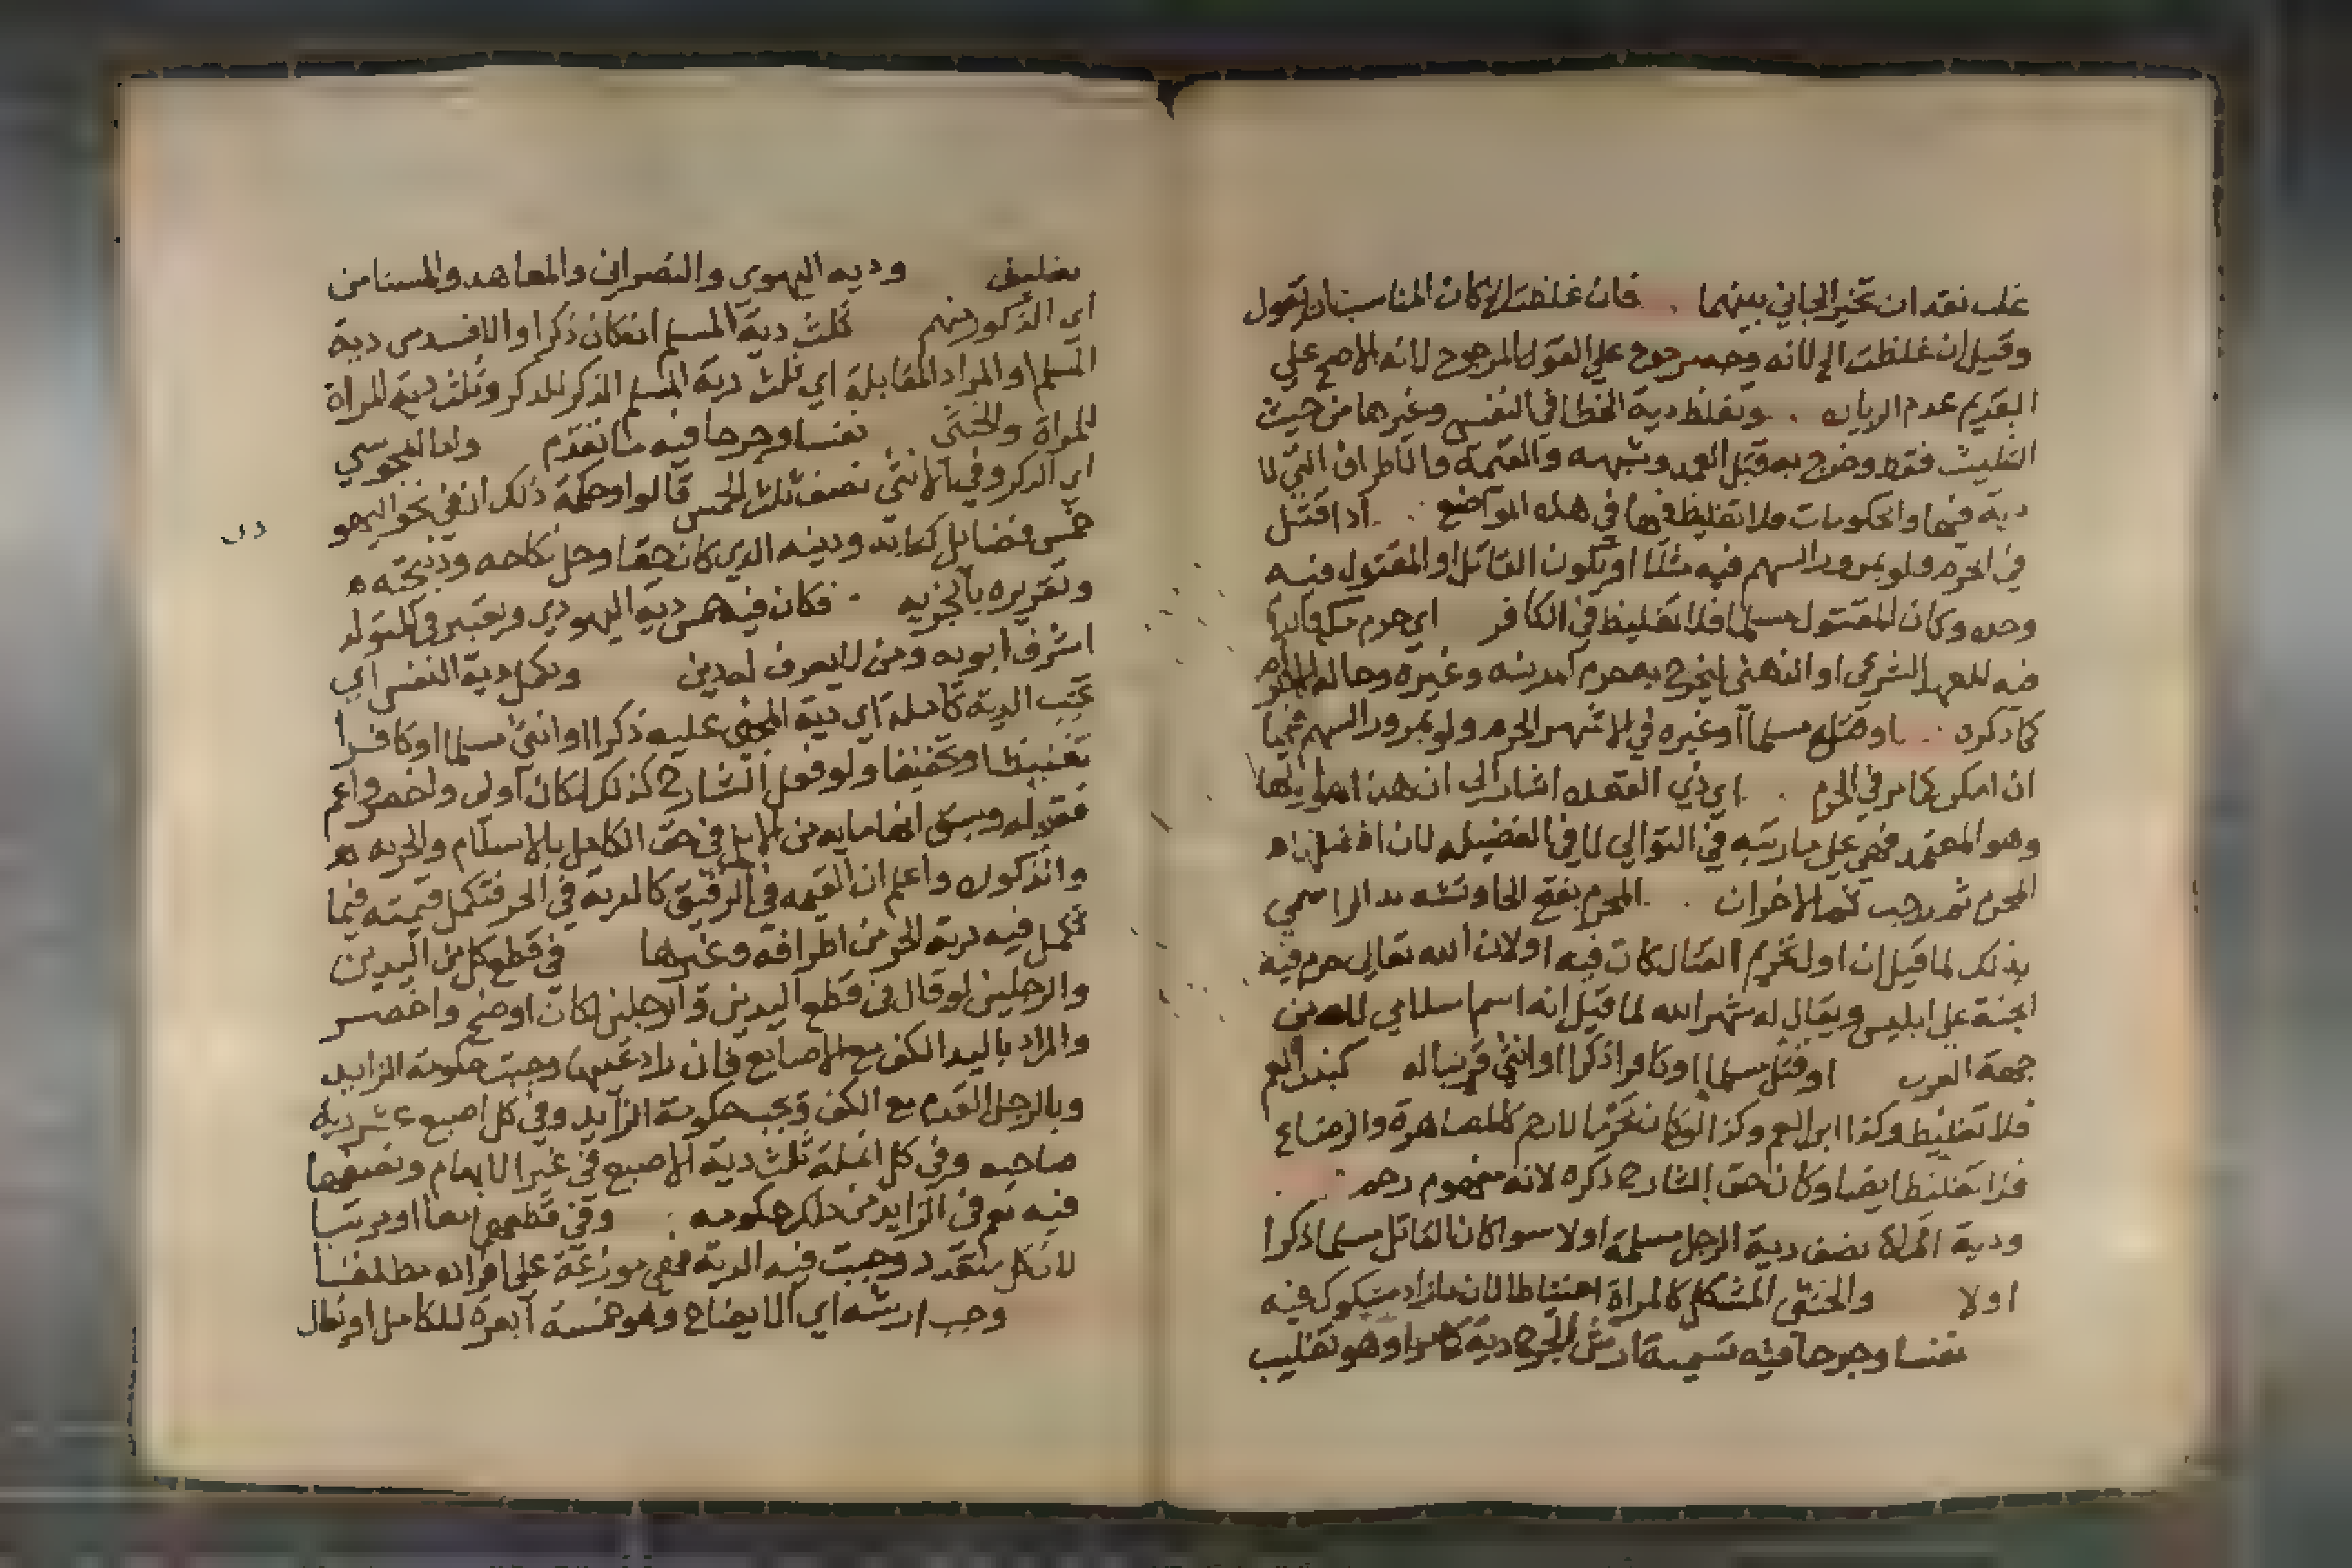 غلب نقد ان تخير الجاني بينهما فان غلظت الخ كان المناسب ان يقول
وقيل ان غلظت الخ لانه وجه مرجوح علي القول المرجوح لانه الاصح علي
القديم عدم الزيادة وتغلظ دية الخطا في النفس وغيرها من حيث
التثليث فقط وخرج به قتل العمد وشبهه والقيمة والاطراف التي لا
دية فيها والحكومات فلا تغليظ فيها في هذه المواضع اذا قتل
في الحرم ولو بمرور السهم فيه مثلا او بكون القاتل او المقتول فيه
وحده وكان المقتول مسلما فلا تغليظ في الكافر اي حرم مكة
فيه للعهد الشرعي او الذهني ليخرج به حرم المدينة وغيره وحالة الاحرام
كما ذكره او قتل مسلما او غيره في الاشهر الحرم ولو بمرور السهم فيها
ان امكن كما مر في الحرم اي ذي القعدة اشار الي ان هذا اولها
وهو المعتمد فهي علي ما رتبه في التوالي لا في الفضيلة لان افضلها
المحرم ثم رجب ثم الاخران المحرم بفتح الحا وتشديد الرا سمي
بذلك لما قيل ان اول تحريم القتال كان فيه او لان الله تعالي حرم فيه
الجنة علي ابليس ويقال له شهر الله لما قيل انه اسم اسلامي للله من
جهة العرب او قتل مسلما او كافرا ذكرا او انثي قريبا له كبنت العم
فلا تغليظ وكذا ابن العم وكذا لو كان محرما لا رحم كالمصاهرة والرضاع
فلا تغليظ ايضا وكان حق الشارح ذكره لانه مفهوم رحم
ودية المراة نصف دية الرجل مسلمة او لا سوا كان القاتل مسلما ذكرا
اولا والخنثي المشكل كالمراة احتياطا لان ما زاد مشكوك فيه
نفسا وجرحا فيه تسمية ارش الجرح دية كما مر وهو تغليب
تغليظ ودية اليهوي والنصراني والمعاهد والمستامن
اي الذكور منهم ثلث دية المسلم ان كان ذكرا والا فسدس دية
المسلم او المراد المقابلة اي ثلث دية المسلم الذكر للذكر وثلث دية المراة
للمراة والخنثي نفسا وجرحا فيه ما تقدم واما المجوسي
اي الذكر وفي الانثي نصف ثلث الخمس قالوا وحكمة ذلك ان في نحو اليهو
دي
خمس فضايل كتابه ودينه الذي كان حقا وحل نكاحه وذبيحته
وتقريره بالجزية فكان فيه خمس دية اليهودي ويعتبر في المتولد
اشرف ابويه ومن لا يعرف له دين وتكمل دية النفس اي
تجب الدية كاملة اي دية المجني عليه ذكرا او انثي مسلما او كافرا
تغليظا وتخفيفا ولو فعل الشارح كذلك لكان اولي واخصر واعم
فقوله وسبق انها ماية من الابل في حق الكامل بالاسلام والحرية
والذكورة واعلم ان القيمة في الرقيق كالدية في الحر فتكمل قيمته فيما
تكمل فيه دية الحر من اطرافه وغيرها في قطع كل من اليدين
والرجلين لو قال في قطع اليدين والرجلين لكان اوضح واخصر
والمراد باليد الكف مع الاصابع فان زاد عليها وجبت حكومة الزايد
وبالرجل القدم مع الكف وتجب حكومة الزايد وفي كل اصبع عشر دية
صاحبه وفي كل انملة ثلث دية الاصبع في غير الابهام ونصفها
فيه نعم في الزايد من ذلك حكومة وفي قطعهما معا او مرتبا
لان كل متعدد وجبت فيه الدية فهي موزعة علي افراده مطلقا
وجب ارشه اي الايضاح وهو خمسة ابعرة للكامل او يقال